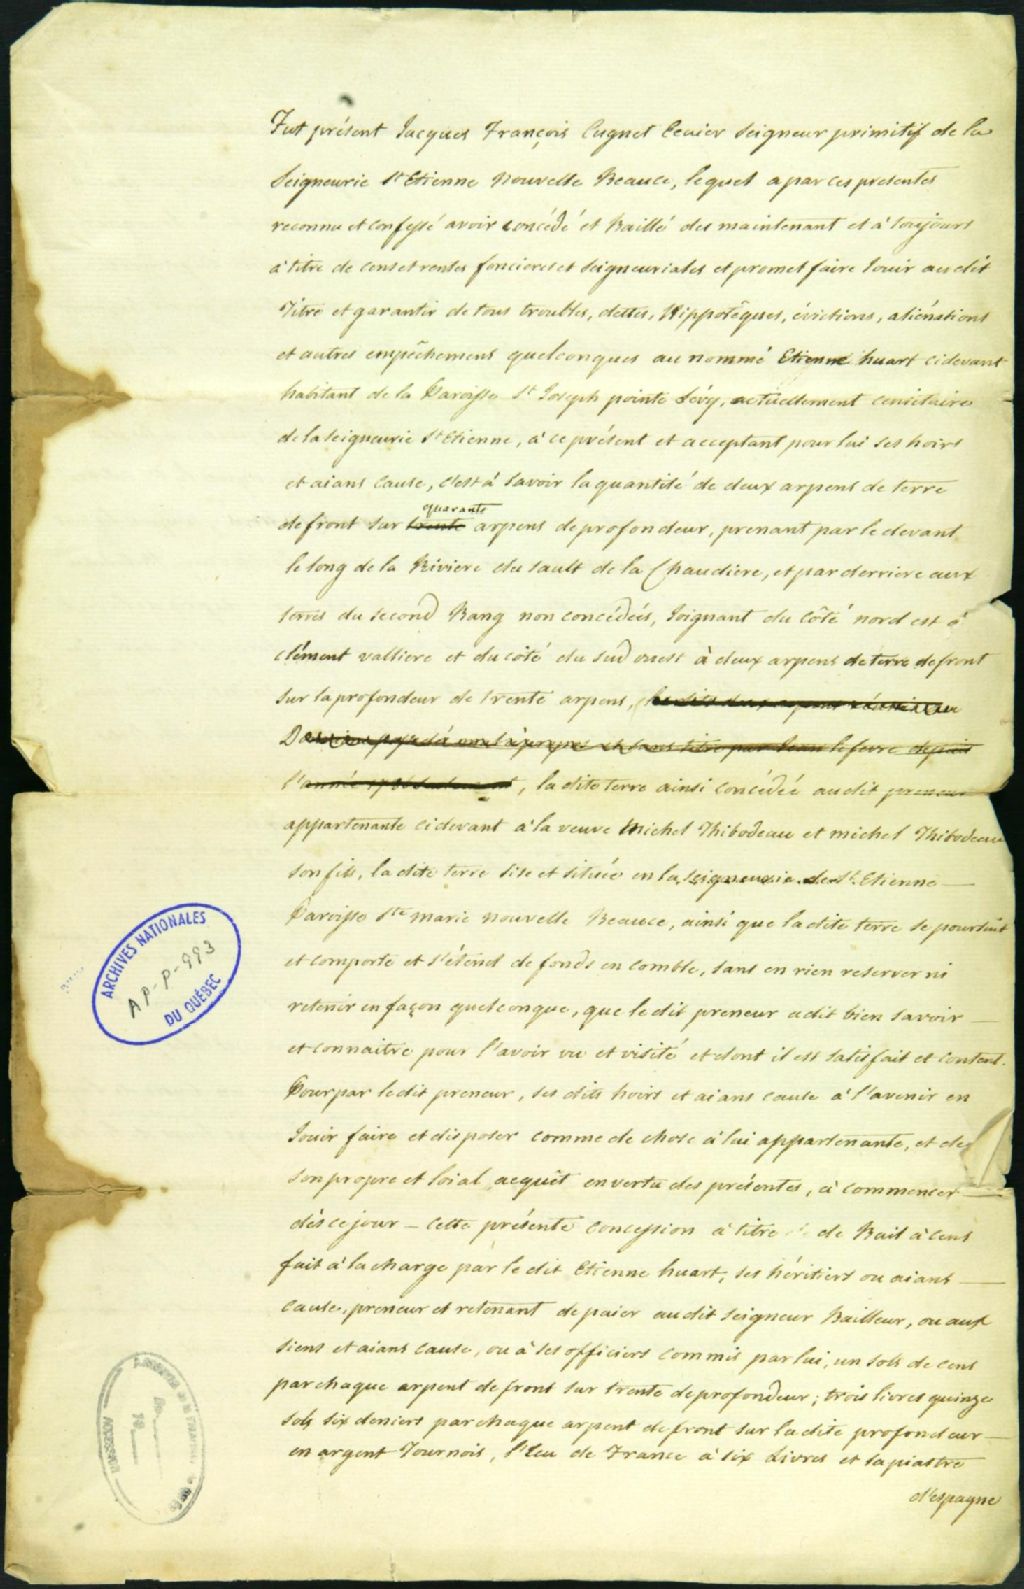 Fut présent Jacques François Cugnet Ecuier Seigneur primitif de la
Seigneurie St Etienne Nouvelle Beauce, lequel a par ces presentes
reconnu et confessé avoir concédé et Baillé des maintenant et à toujours
à titre de cens et rentes foncieres et Seigneuriales et promet faire Jouir au dit
Titre et garantir de tous troubles, dettes, Hippotêques, évictions, aliénations
et autres empêchemens quelconques au nommé Etienne huart cidevant
habitant de la Paroisse St Joseph pointe Lévy, actuellement censitaire
de la seigneurie St Etienne, à ce présent et acceptant pour lui ses hoirs
et aians cause, c'est à savoir la quantité de deux arpens de terre
quarante
de front sur trente arpens de profondeur, prenant par le devant
le long de la Riviere du sault de la Chaudiere, et par derriere aux
terres du second Rang non concédées, Joignant du côté nord est à
clément valliere et du côté du sud ouest à deux arpens de terre de front
sur la profondeur de trente arpens,
lefevre depuis
l'année, la dite terre ainsi concédée au dit preneur
appartenante cidevant à la veuve Michel Thibodeau et michel Thibodeau
son fils, la dite terre sise et située en la seigneurie de St. Etienne
Paroisse Ste marie nouvelle Beauce, ainsi que la dite terre se poursuit
et comporte et s'étend de fonds en comble, sans en rien reserver ni
retenir en façon quelconque, que le dit preneur a dit bien savoir
et connaitre pour l'avoir vu et visité et dont il est satisfait et content.
Pour par le dit preneur, ses dits hoirs et aians cause à l'avenir en
Jouir faire et disposer comme de chose à lui appartenante, et de
son propre et loial acquêt en vertu des présentes, à commencer
dès ce jour - cette présente concession à titre de Bail à cens
fait à la charge par le dit Etienne huart, ses héritiers ou aians
cause, preneur et retenant de paier au dit seigneur Bailleur, ou aux
siens et aians cause, ou à ses officiers commis par lui, un sols de cens
par chaque arpent de front sur trente de profondeur; trois livres quinze
sols six deniers par chaque arpent de front sur la dite profondeur
en argent Tournois, l'Ecu de France à six Livres et la piastre
d'espagne
ARCHIVES NATIONALES
AP-P-993
DU QUÉBEC